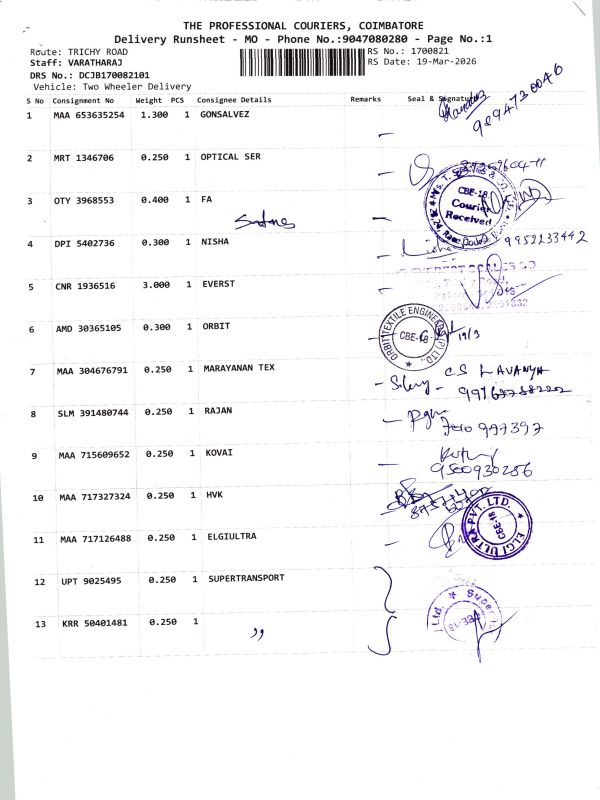 THE PROFESSIONAL COURIERS, COIMBATORE
Delivery Runsheet - MO - Phone No.:9047080280 - Page No.:1
Route: TRICHY ROAD
RS No.: 1700821
Staff: VARATHARAJ
RS Date: 19-Mar-2026
DRS No.: DCJB170082101
Vehicle: Two Wheeler Delivery
S No Consignment No Weight PCS Consignee Details Remarks Seal & Signature
1 MAA 653635254 1.300 1 GONSALVEZ
9894730046
2 MRT 1346706 0.250 1 OPTICAL SER
3 OTY 3968553 0.400 1 FA
CBE-18
Courier
Received
4 DPI 5402736 0.300 1 NISHA
9952233442
5 CNR 1936516 3.000 1 EVERST
6 AMD 30365105 0.300 1 ORBIT
ORBIT TEXTILE ENGINEERS (P) LTD.,
CBE-18
19/3
7 MAA 304676791 0.250 1 MARAYANAN TEX
CS LAVANYA
8 SLM 391480744 0.250 1 RAJAN
9 MAA 715609652 0.250 1 KOVAI
9500930286
10 MAA 717327324 0.250 1 HVK
11 MAA 717126488 0.250 1 ELGIULTRA
ELGI ULTRA PVT. LTD.
CBE-18
12 UPT 9025495 0.250 1 SUPERTRANSPORT
13 KRR 50401481 0.250 1 ,,